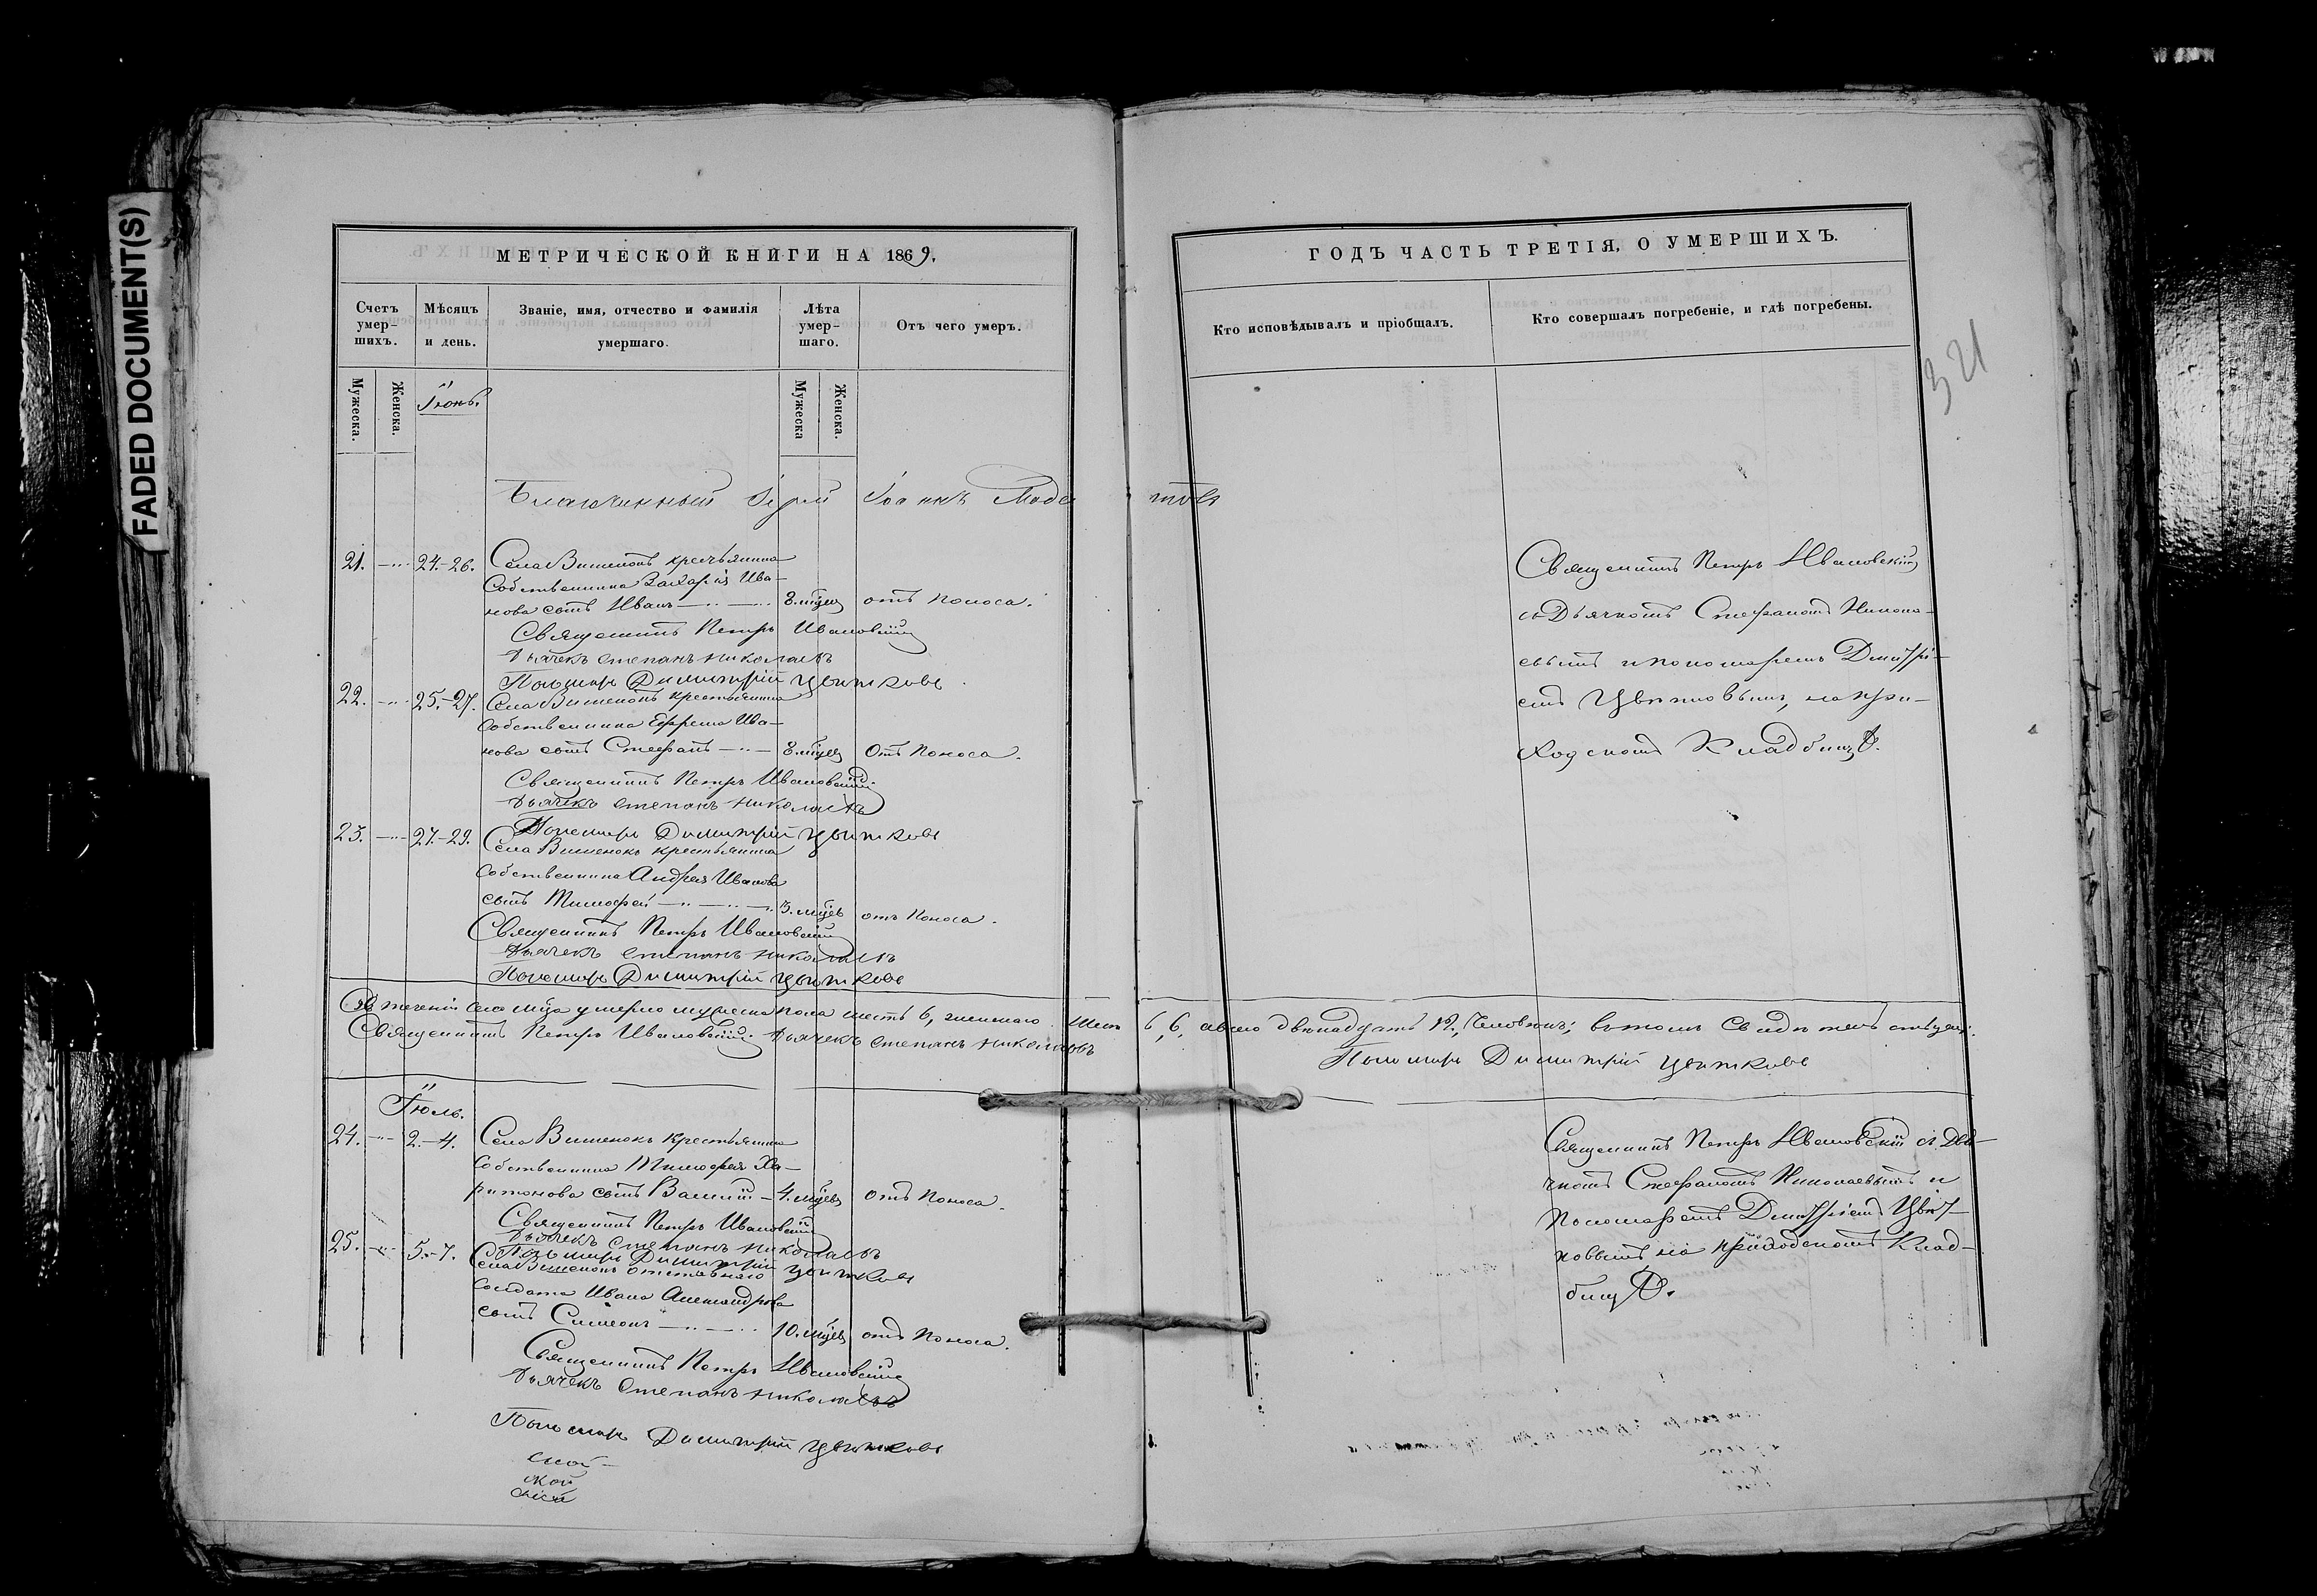 FADED DOCUMENT(S)
МЕТРИЧЕСКОЙ КНИГИ НА 1869.
Счетъ умер-шихъ.
Мѣсяцъ и день.
Званіе, имя, отчество и фамилія умершаго.
Лѣта умер-шаго.
Отъ чего умеръ.
Мужеска.
Женска.
Іюнь.
Мужеска
Женска.
21. 24.-26. Села Вишенокъ крестьянина
Собственника Захарія Ива-
нова сынъ Иванъ 8. мцев отъ поноса.
Священникъ Петръ Ивановскій
Дьячекъ Степанъ Николаевъ
Пономарь Димитрій Цвѣтковъ
22. 25.-27. Села Вишенокъ крестьянина
Собственника Ефрема Ива-
нова сынъ Стефанъ 8. мцев Отъ поноса.
Священникъ Петръ Ивановскій
Дьячекъ Степанъ Николаевъ
Пономарь Димитрій Цвѣтковъ
23. 27.-29. Села Вишенокъ крестьянина
Собственника Андрея Иванова
сынъ Тимофей 3. мцев отъ поноса.
Священникъ Петръ Ивановскій
Дьячекъ Степанъ Николаевъ
Пономарь Димитрій Цвѣтковъ
Въ теченіи сего мца умерло мужеска пола шесть 6, женскаго шесть 6, а всего двѣнадцать 12, человѣкъ; въ томъ свидѣтельствуемъ:
Священникъ Петръ Ивановскій. Дьячекъ Степанъ Николаевъ
Пономарь Димитрій Цвѣтковъ
Іюль.
24. 2.-4. Села Вишенокъ крестьянина
Собственника Тимофея Ха-
ритонова сынъ Василій 4. мцев отъ поноса.
Священникъ Петръ Ивановскій
Дьячекъ Степанъ Николаевъ
Пономарь Димитрій Цвѣтковъ
25. 5.-7. Села Вишенокъ отставнаго
Солдата Ивана Александрова
сынъ Симеонъ 10. мцев отъ поноса.
Священникъ Петръ Ивановскій
Дьячекъ Степанъ Николаевъ
Пономарь Димитрій Цвѣтковъ
ГОДЪ ЧАСТЬ ТРЕТІЯ, О УМЕРШИХЪ.
Кто исповѣдывалъ и пріобщалъ.
Кто совершалъ погребеніе, и гдѣ погребены.
321
Священникъ Петръ Ивановскій
съ Дьячкомъ Стефаномъ Никола-
евымъ и пономаремъ Дмитрі-
емъ Цвѣтковымъ, на при-
ходскомъ Кладбищѣ.
Священникъ Петръ Ивановскій съ Дья-
чкомъ Стефаномъ Николаевымъ и
Пономаремъ Дмитріемъ Цвѣт-
ковымъ на приходскомъ Клад-
бищѣ.